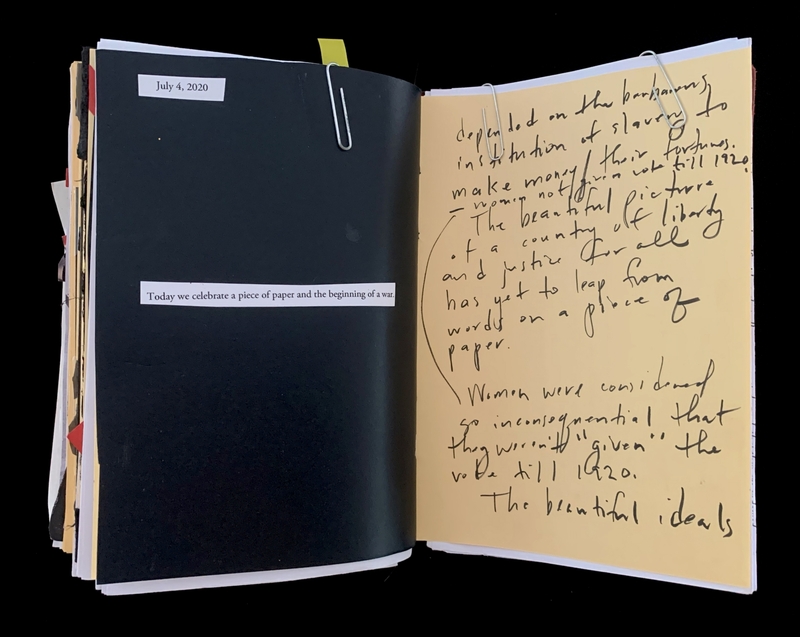 July 4, 2020
Today we celebrate a piece of paper and the beginning of a war.
depended on the barbarous
institution of slavery to
make money/their fortunes.
– women not given vote till 1920.
The beautiful picture
of a country of liberty
and justice for all
has yet to leap from
words on a piece of
paper.
Women were considered
so inconsequential that
they weren't "given" the
vote till 1920.
The beautiful ideals